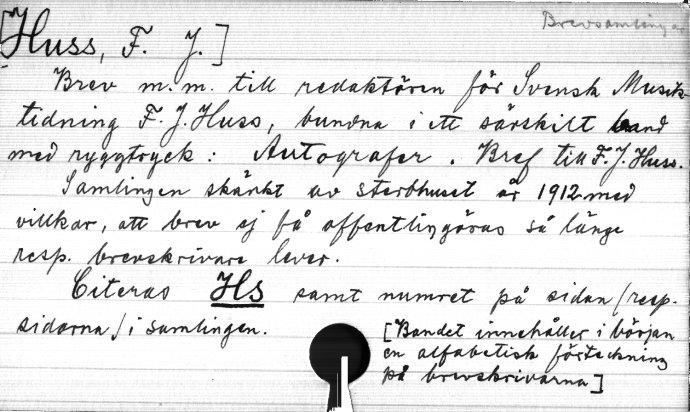 Brevsamlingar
[Huss, F. J.]
Brev m.m. till redaktören för Svensk Musik-
tidning F. J. Huss, bundna i ett särskilt band
med ryggtryck: Autografer. Bref till F. J. Huss.
Samlingen skänkt av sterbhuset år 1912 med
villkor, att brev ej få offentligöras så länge
resp. brevskrivare lever.
Citeras Hs samt numret på sidan/resp.
sidorna/i samlingen.
[Bandet innehåller i början
en alfabetisk förteckning
på brevskrivarna]